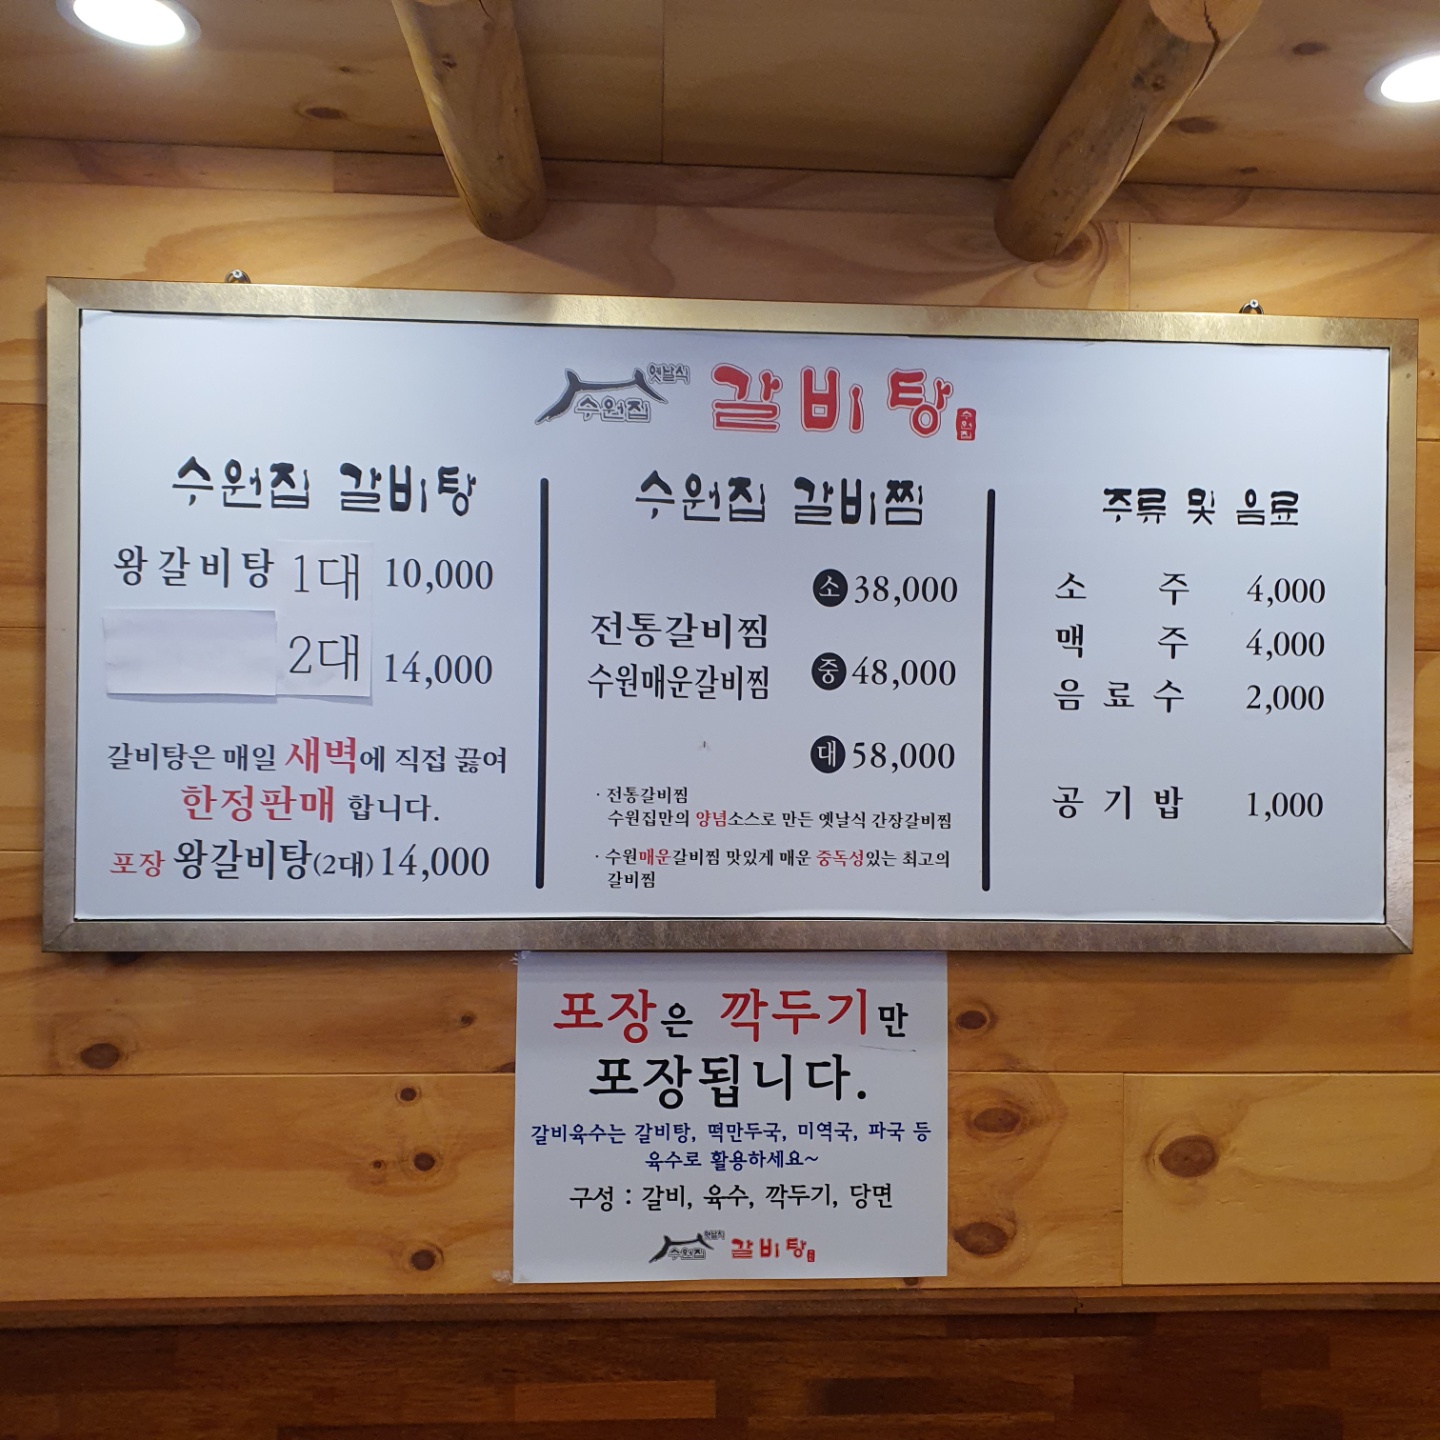 옛날식
수원집 갈비탕 수원집
수원집 갈비탕
왕갈비탕 1대 10,000
2대 14,000
갈비탕은 매일 새벽에 직접 끓여
한정판매 합니다.
포장 왕갈비탕(2대) 14,000
수원집 갈비찜
전통갈비찜
수원매운갈비찜
소 38,000
중 48,000
대 58,000
· 전통갈비찜
수원집만의 양념소스로 만든 옛날식 간장갈비찜
· 수원매운갈비찜 맛있게 매운 중독성있는 최고의
갈비찜
주류 및 음료
소 주 4,000
맥 주 4,000
음 료 수 2,000
공 기 밥 1,000
포장은 깍두기만
포장됩니다.
갈비육수는 갈비탕, 떡만두국, 미역국, 파국 등
육수로 활용하세요~
구성 : 갈비, 육수, 깍두기, 당면
옛날식
수원집 갈비탕